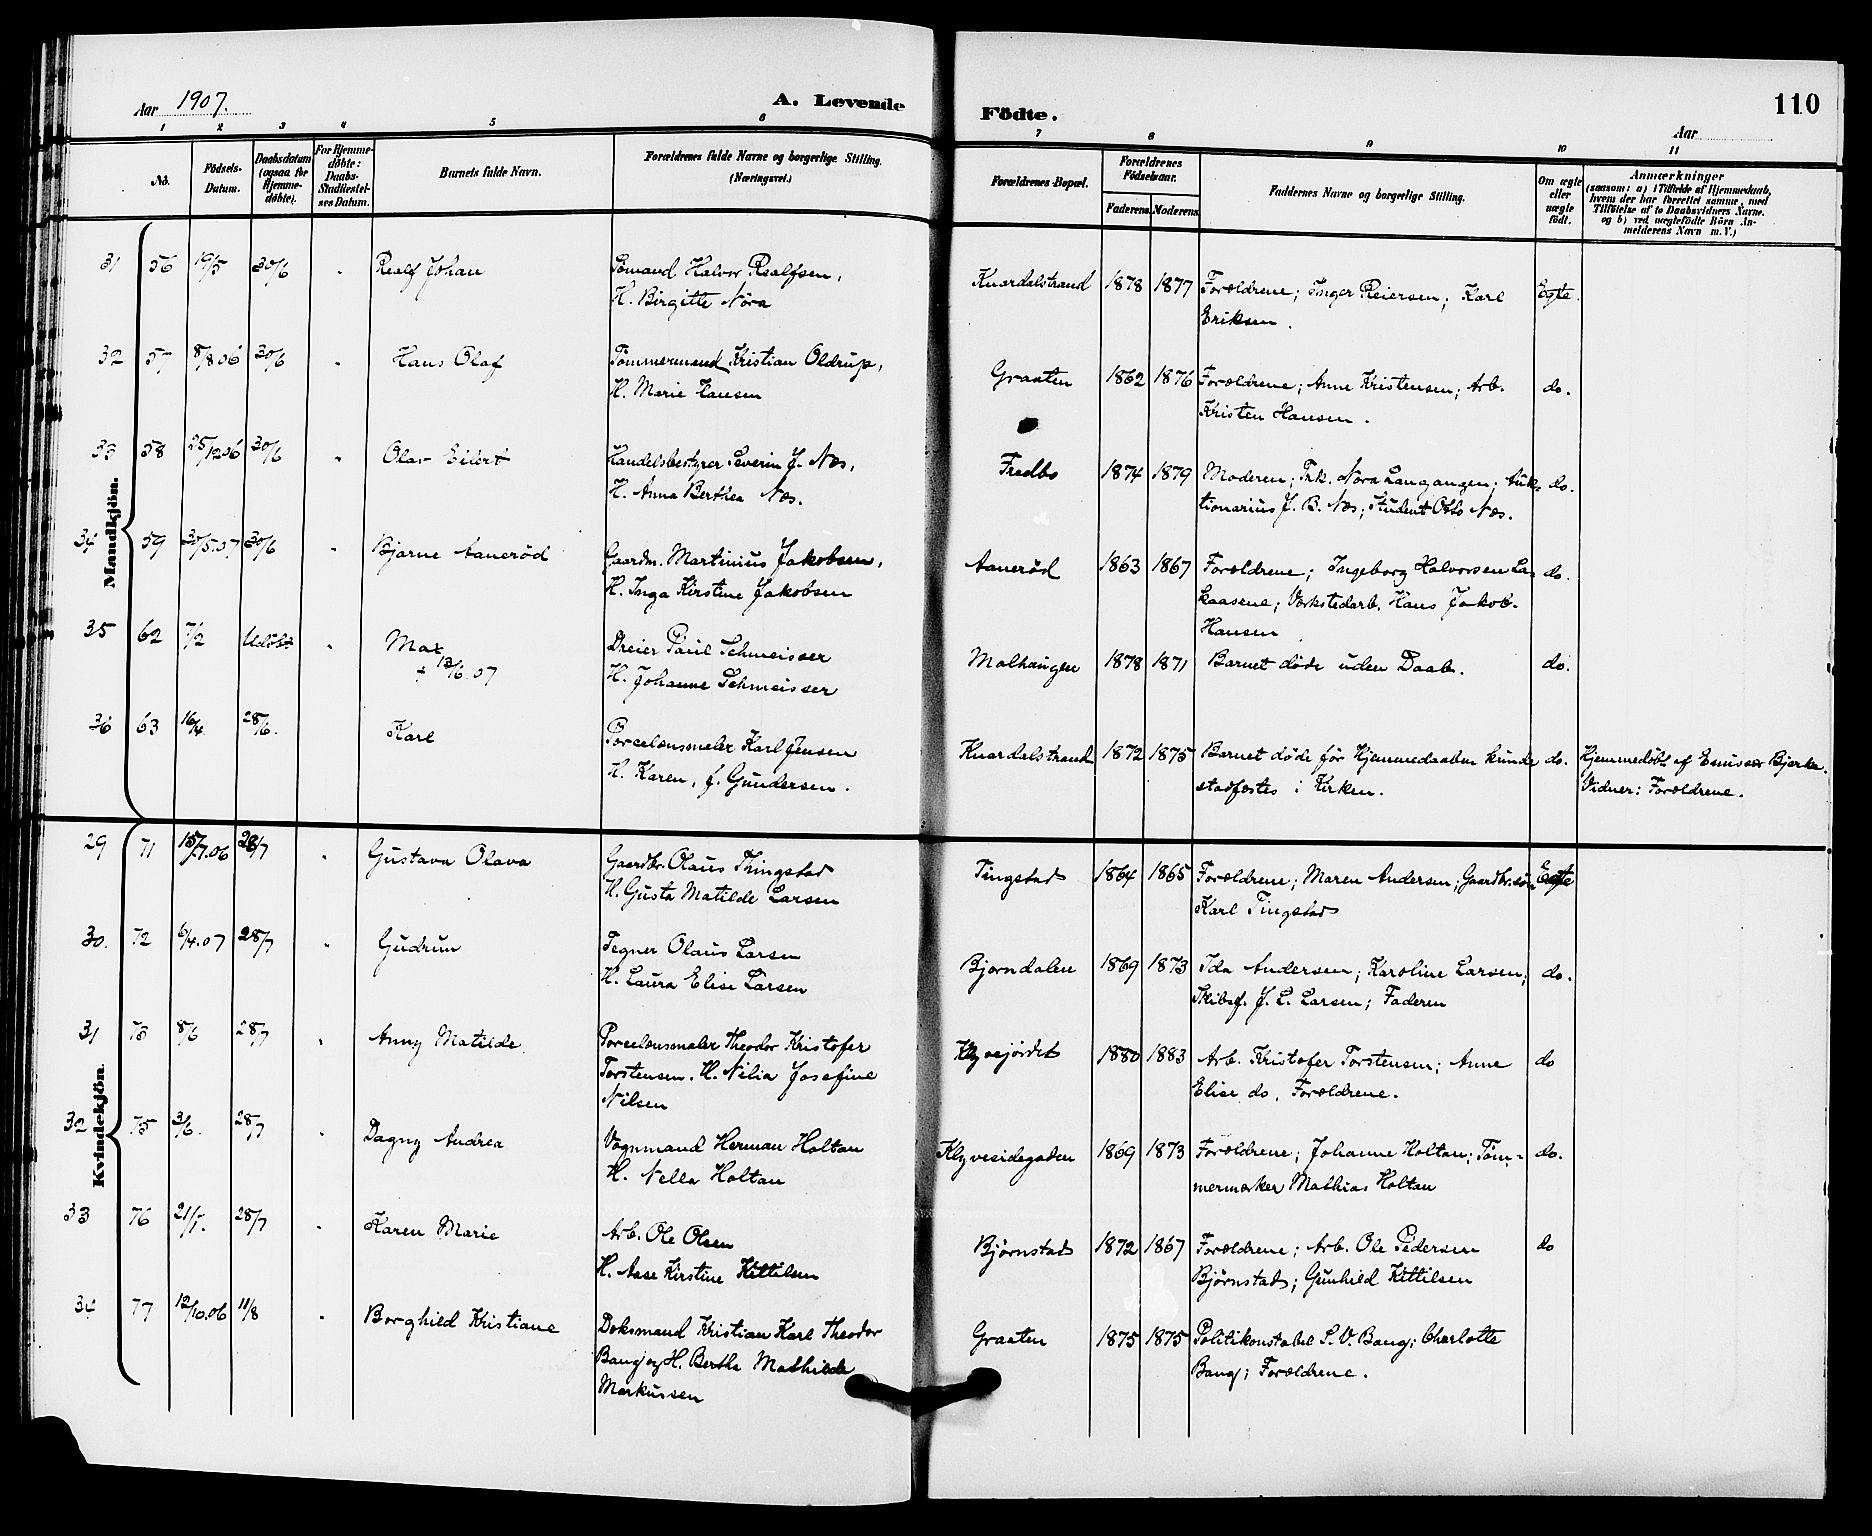 Aar 1907. A. Levende
1 2 3 4 5 6
No. Födsels-Datum. Daabsdatum (ogsaa for Hjemme-döbte). For Hjemme-döbte: Daabs-Stadfæstel-ses Datum. Barnets fulde Navn. Forældrenes fulde Navne og borgerlige Stilling. (Næringsvei.)
Mandkjön.
31 56 19/5 30/6 " Realf Johan Sømand Halvor Realfsen,
H. Birgitte Nora
32 57 8/8 06 30/6 " Hans Olaf Tømmermand Kristian Oldrup,
H. Marie Hansen
33 58 25/12 06 30/6 " Olav Eilert Handelsbestyrer Severin J. Næs,
H. Anna Berthea Næs.
34 59 30/5.07 30/6 " Bjarne Aanerød Gaardm. Martinius Jakobsen,
H. Inga Kirstine Jakobsen
35 62 7/2 Udøbt " Max Dreier Paul Schmeisser
+ 13/6.07 H. Johanne Schmeisser
36 63 16/4 28/6. Karl Porcelænsmaler Karl Jensen
H. Karen, f. Gundersen.
Kvindekjön.
29 71 15/7.06 28/7 " Gustava Olava Gaardbr. Olaus Thingstad
H. Gusta Matilde Larsen
30. 72 6/4.07 28/7 " Gudrun Tegner Olaus Larsen
H. Laura Elise Larsen
31 73 8/6 28/7 " Anny Matilde Porcelænsmaler Theodor Kristofer
Torstensen. H. Nilia Josefine
Nilsen
32 75 3/6. 28/7 " Dagny Andrea Vognmand Herman Holtan
H. Nella Holtan
33 76 21/7. 28/7 " Karen Marie Arb. Ole Olsen
H. Aase Kirstine Kittilsen
34 77 12/10.06 11/8 " Borghild Kristiane Doksmand Kristian Karl Theodor
Bang og H. Bertha Mathilde
Markussen
Födte. 110
Aar
7 8 9 10 11
Forældrenes Bopæl. Forældrenes Födselsaar. Faderens. Moderens. Faddernes Navne og borgerlige Stilling. Om ægte eller uægte födt. Anmærkninger
(saasom: a) i Tilfælde af Hjemmedaab,
hvem der har forrettet samme, med
Tilföielse af to Daabsvidners Navne.
og b) ved uægtefödte Börn An-
melderens Navn m. V.)
Knardalstrand 1878 1877 Forældrene; Inger Reiersen; Karl Egte.
Eriksen.
Graaten 1862 1876 Forældrene; Anne Kristensen; Arb. do.
Kristen Hansen.
Fredbo 1874 1879 Moderen; Frk. Nora Langangen; Auk- do.
tionarius J. B. Næs; Student Otto Næs.
Aanerød 1863 1867 Forældrene; Ingeborg Halvorsen La- do.
kaasene; Verkstedarb. Hans Jakob-
Hansen
Molhaugen 1878 1871 Barnet døde uden Daab. do.
Knardalstrand 1872 1875 Barnet døde før Hjemmedaaben kunde do. Hjemmedøbt af Emissær Bjerke.
stadfæstes i Kirken. Vidner: Forældrene.
Tingstad 1864 1865 Forældrene; Maren Andersen; Gaardbr.søn Egte
Karl Tingstad
Bjørndalen 1869 1873 Ida Andersen; Karoline Larsen; do.
Skibsf. J. L. Larsen; Faderen
Klyvejordet 1880 1883 Arb. Kristofer Torstensen; Anne do
Elise do, Forældrene.
Klyvesidegaden 1869 1873 Forældrene; Johanne Holtan; Töm- do.
mermerker Mathias Holtan
Bjørnstad 1872 1867 Forældrene; Arb. Ole Pedersen do
Bjørnstad; Gunhild Kittilsen
Graaten 1875 1875 Politikonstabel S. V. Bang; Charlotte
Bang; Forældrene.